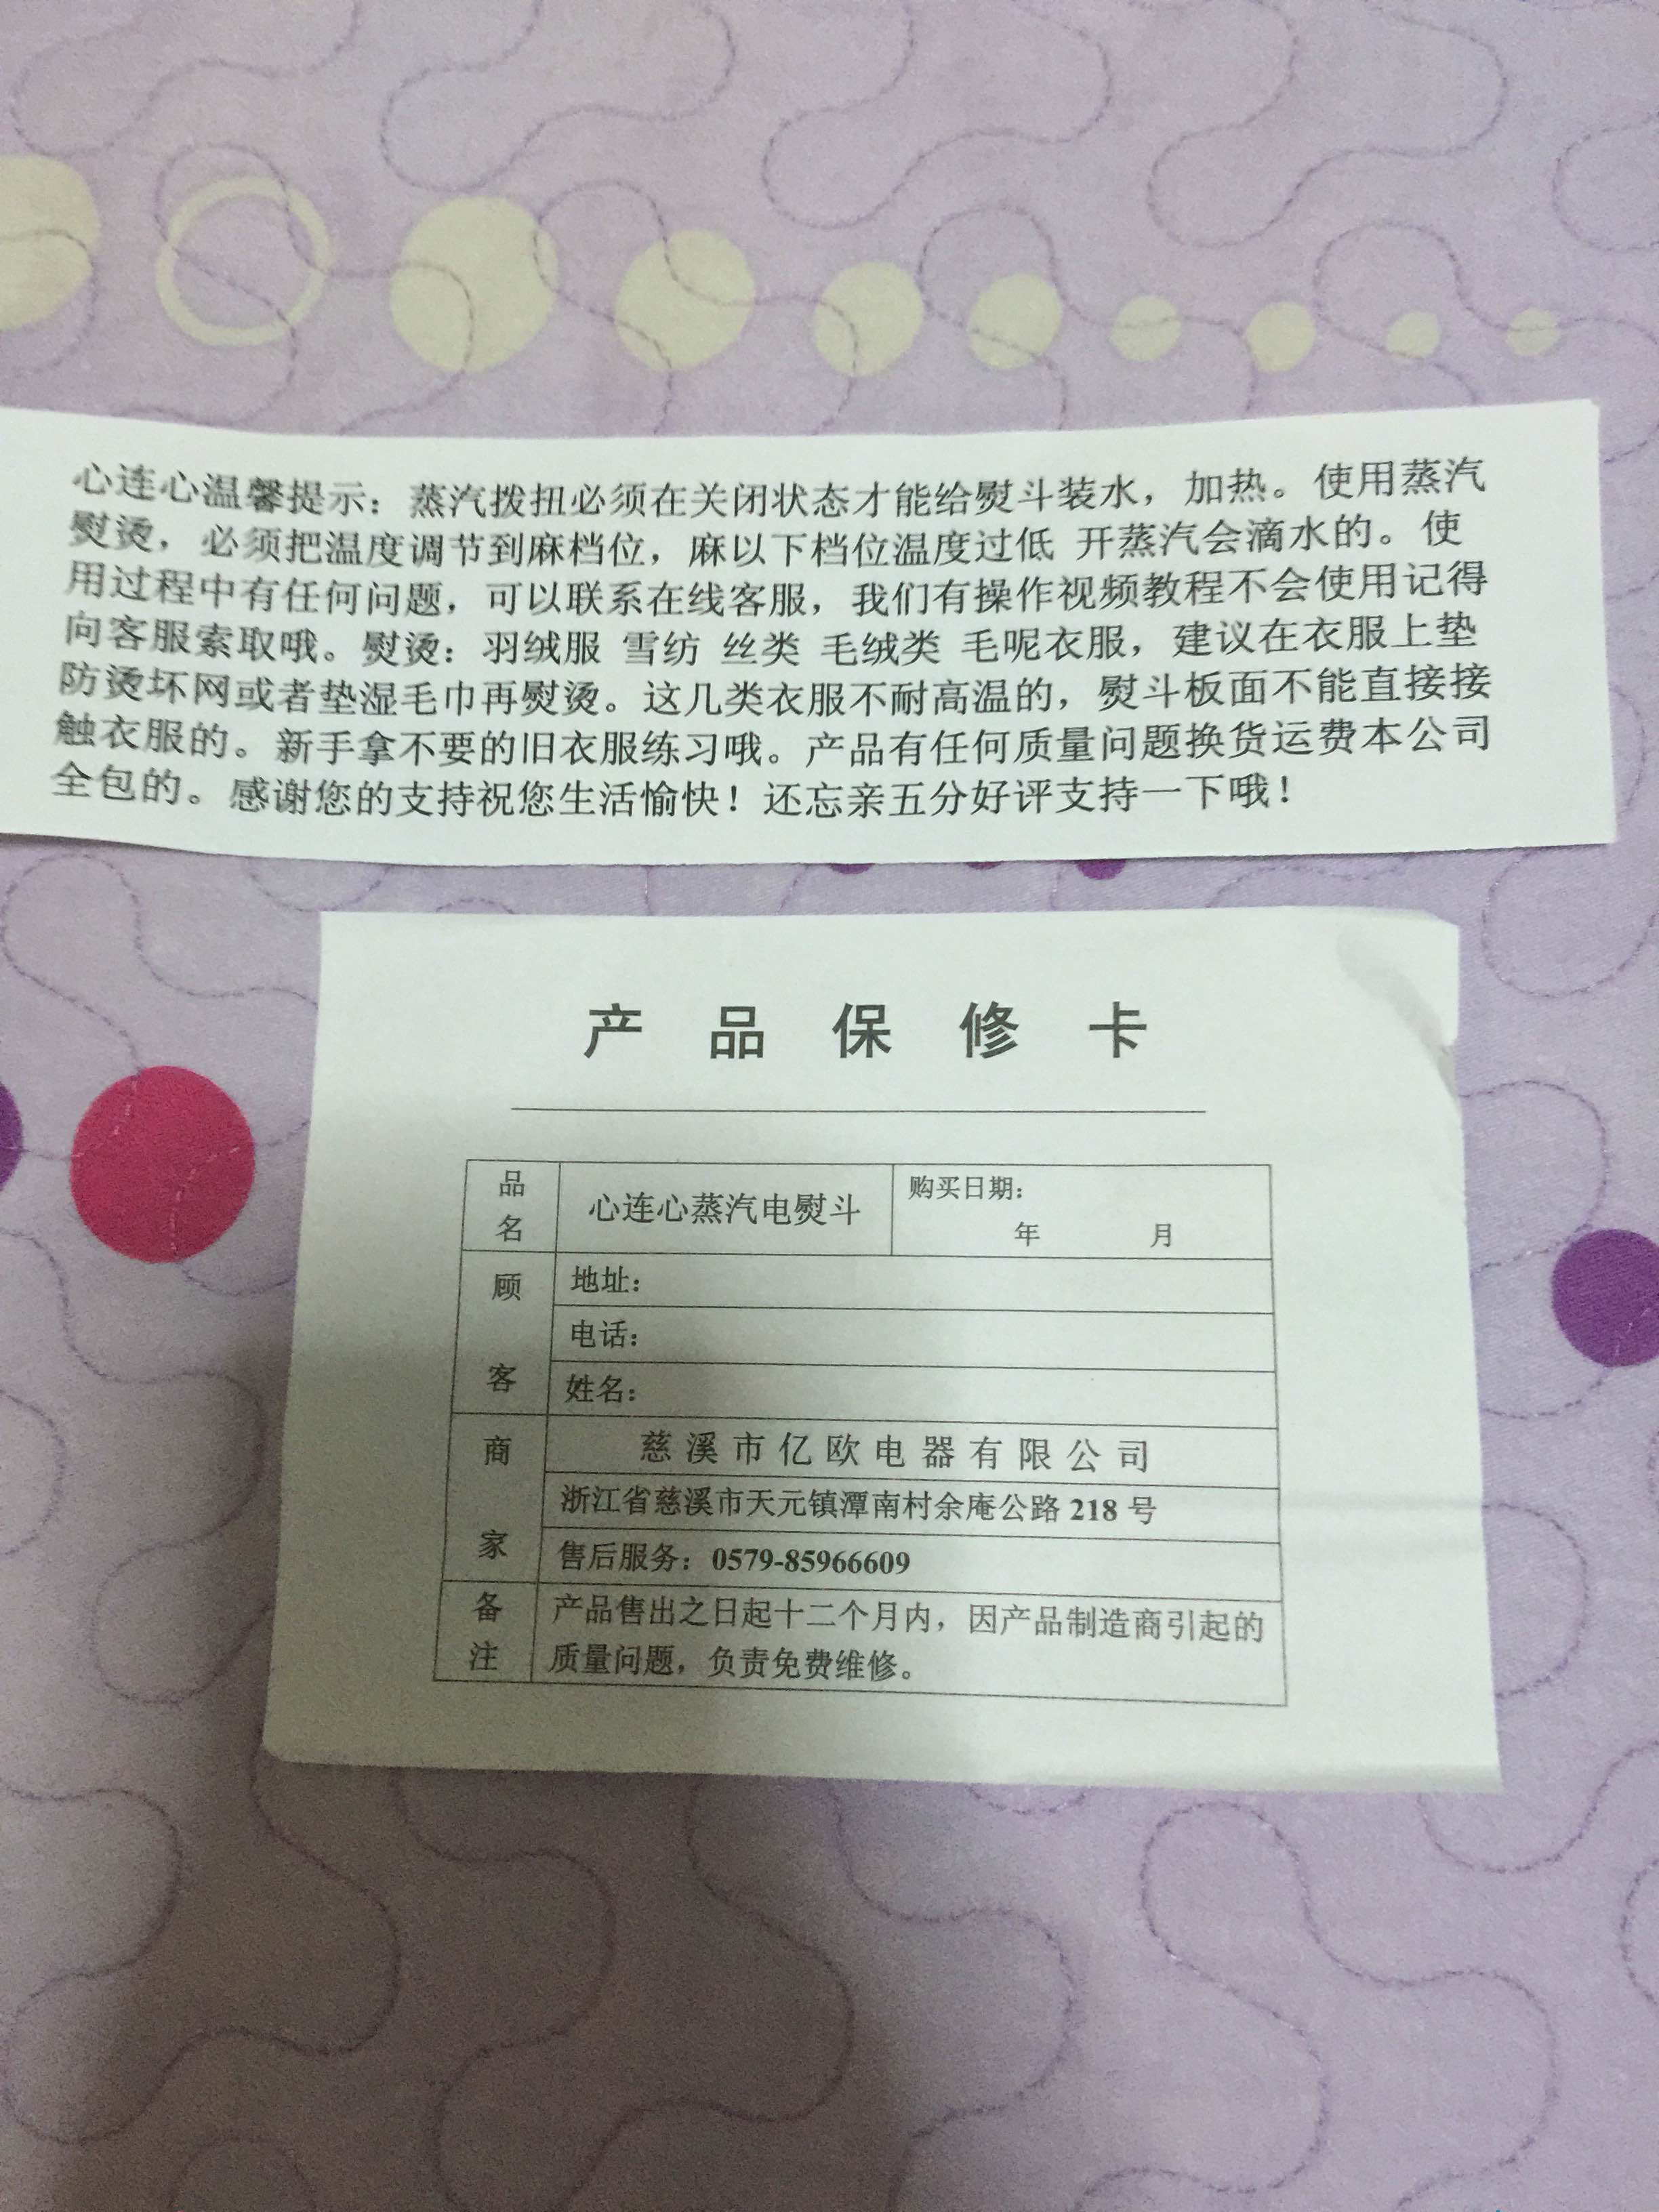 心连心温馨提示：蒸汽拨扭必须在关闭状态才能给熨斗装水，加热。使用蒸汽
熨烫，必须把温度调节到麻档位，麻以下档位温度过低 开蒸汽会滴水的。使
用过程中有任何问题，可以联系在线客服，我们有操作视频教程不会使用记得
向客服索取哦。熨烫：羽绒服 雪纺 丝类 毛绒类 毛呢衣服，建议在衣服上垫
防烫坏网或者垫湿毛巾再熨烫。这几类衣服不耐高温的，熨斗板面不能直接接
触衣服的。新手拿不要的旧衣服练习哦。产品有任何质量问题换货运费本公司
全包的。感谢您的支持祝您生活愉快！还忘亲五分好评支持一下哦！
产品保修卡
品名 心连心蒸汽电熨斗 购买日期：
年 月
顾客 地址：
电话：
姓名：
商家 慈溪市亿欧电器有限公司
浙江省慈溪市天元镇潭南村余庵公路 218 号
售后服务：0579-85966609
备注 产品售出之日起十二个月内，因产品制造商引起的
质量问题，负责免费维修。